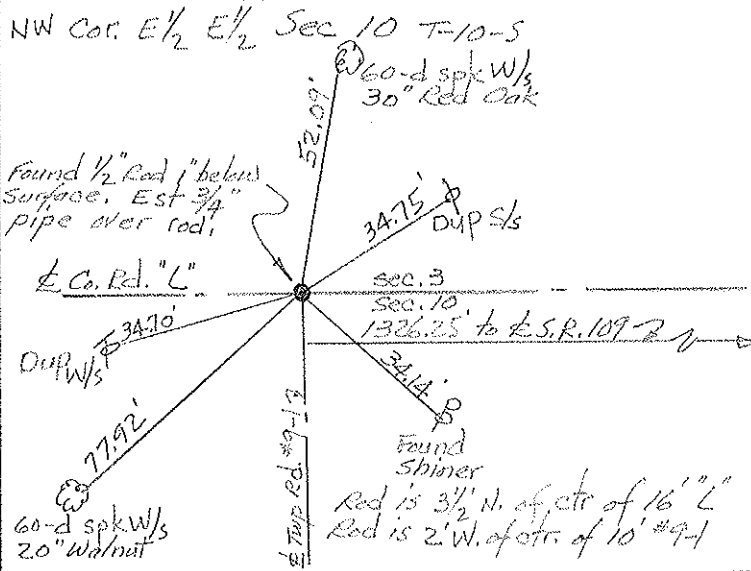 NW Cor. E 1/2 E 1/2 Sec 10 T-10-S
60-d spk W/s
30" Red Oak
52.09'
Found 1/2" Rod 1" below
Surface. Est 3/4"
pipe over rod.
34.75'
Dup S/s
℄ Co. Rd. "L"
Sec. 3
Sec. 10
1326.25' to ℄ S.R. 109
34.70'
Dup W/s
34.14'
77.92'
℄ Twp Rd. #9-1
Found
Shiner
60-d spk W/s
20" Walnut
Rod is 3 1/2' N. of ctr of 16' "L"
Rod is 2' W. of ctr. of 10' #9-1